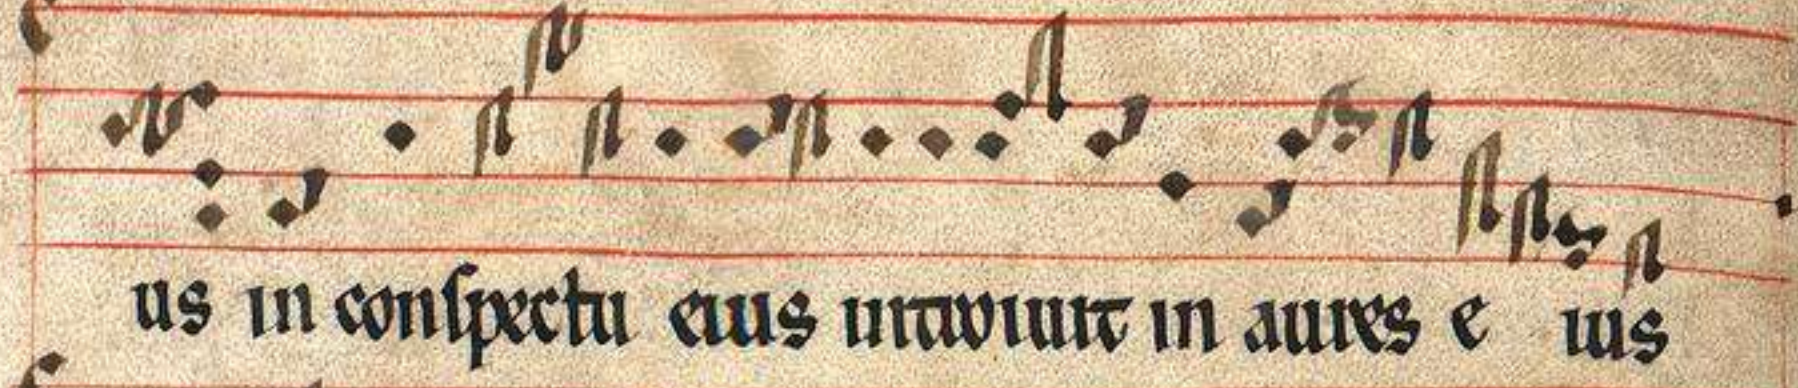 us in conſpectu eius introiuit in aures e ius